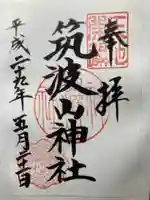 奉拝
筑波山神社
平成二十九年五月二十日